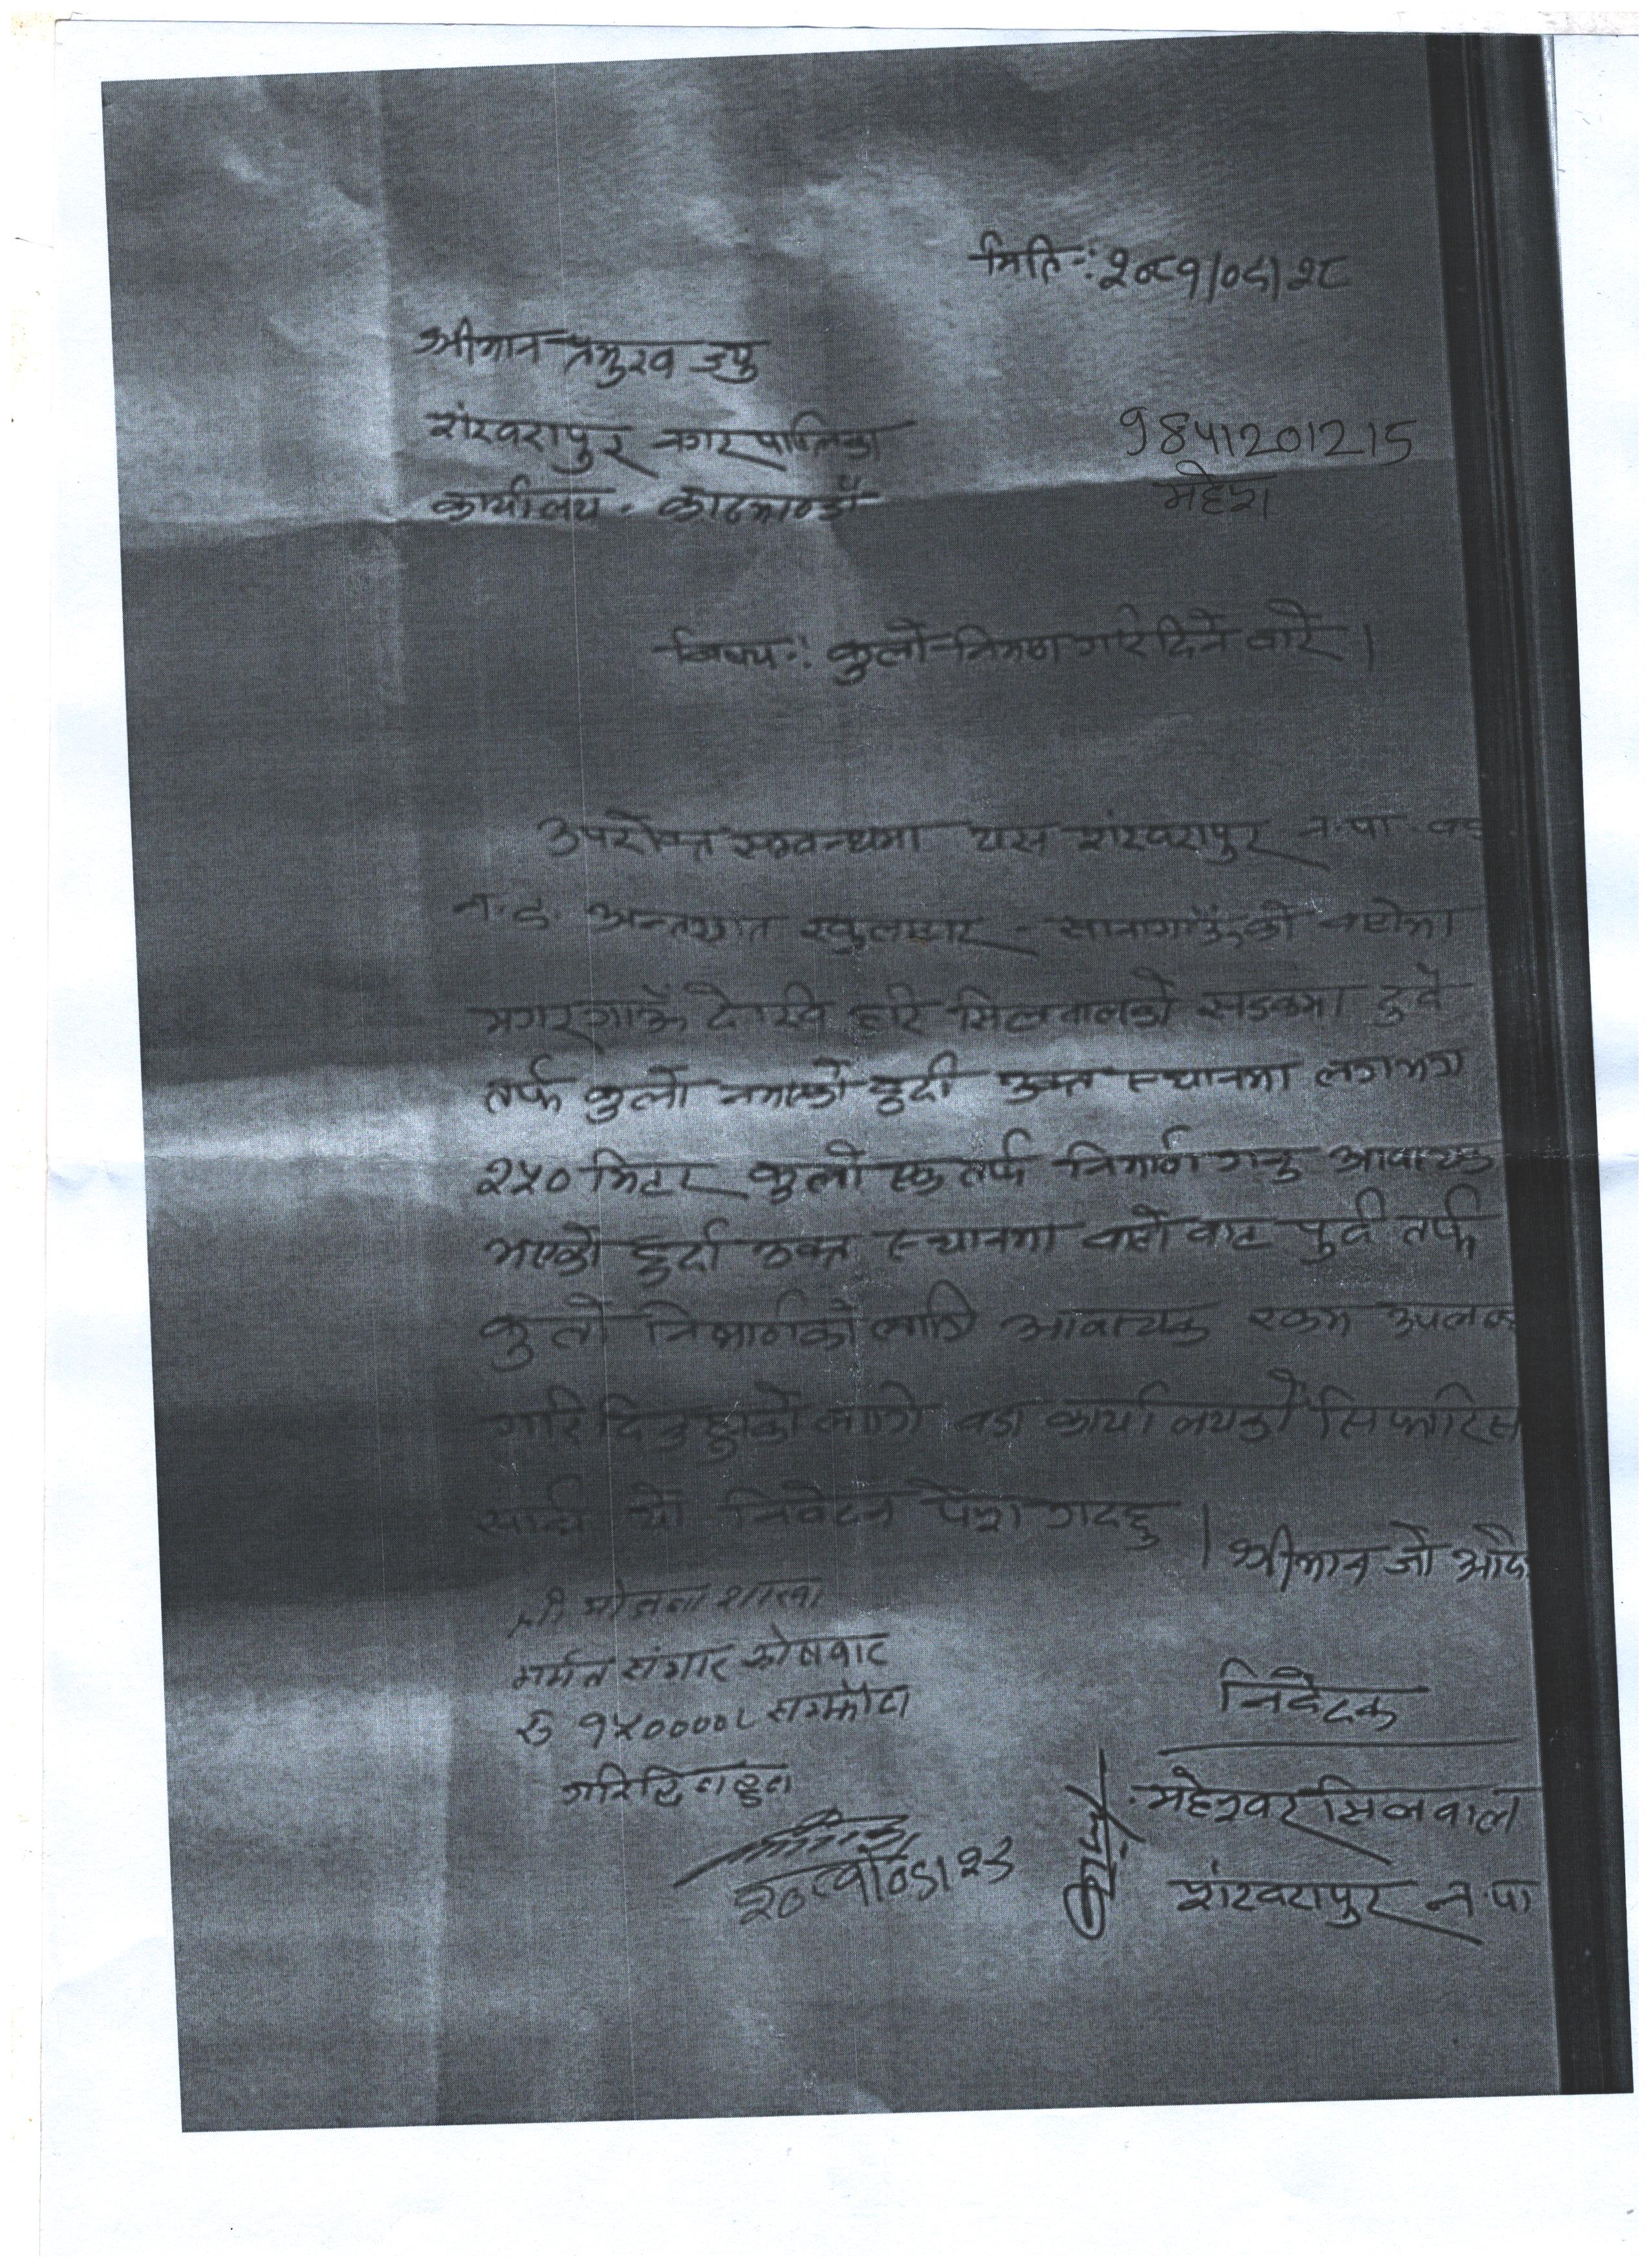 मिति-: २०८१/०८/२८
श्रीमान प्रमुख ज्यु
शंखरापुर नगरपालिका
9841201215
कार्यालय . काठमाण्डौ
महेश
विषय-: कुलो निर्माण गरिदिने वारे ।
उपरोक्त सम्वन्धमा यस शंखरापुर न.पा. वडा
न.८. अन्तरगत स्कुलडाँर - सानागाउँको वाटोमा
मगरगाउँ देखि हरि सिलवालको सडकमा दुवै
तर्फ कुलो नभएको हुदाँ उक्त स्थानमा लगभग
२५० मिटर कुलो एक तर्फ निर्माण गर्नु आवश्यक
भएको हुदाँ उक्त स्थानमा वाटो वाट पुर्व तर्फ
कुलो निर्माणको लागि आवश्यक रकम उपलब्ध
गरि दिनुहुनको लागी वडा कार्यालयको सिफारिस
साथ यो निवेदन पेश गर्दछु । श्रीमान जो आदेश
श्री योजना शाखा
मर्मत संभार कोषबाट
रु १५००००। सम्झौता
गरिदिनुहुन
२०८१।०८।२८
निवेदक
महेश्वर सिलवाल
शंखरापुर न.पा